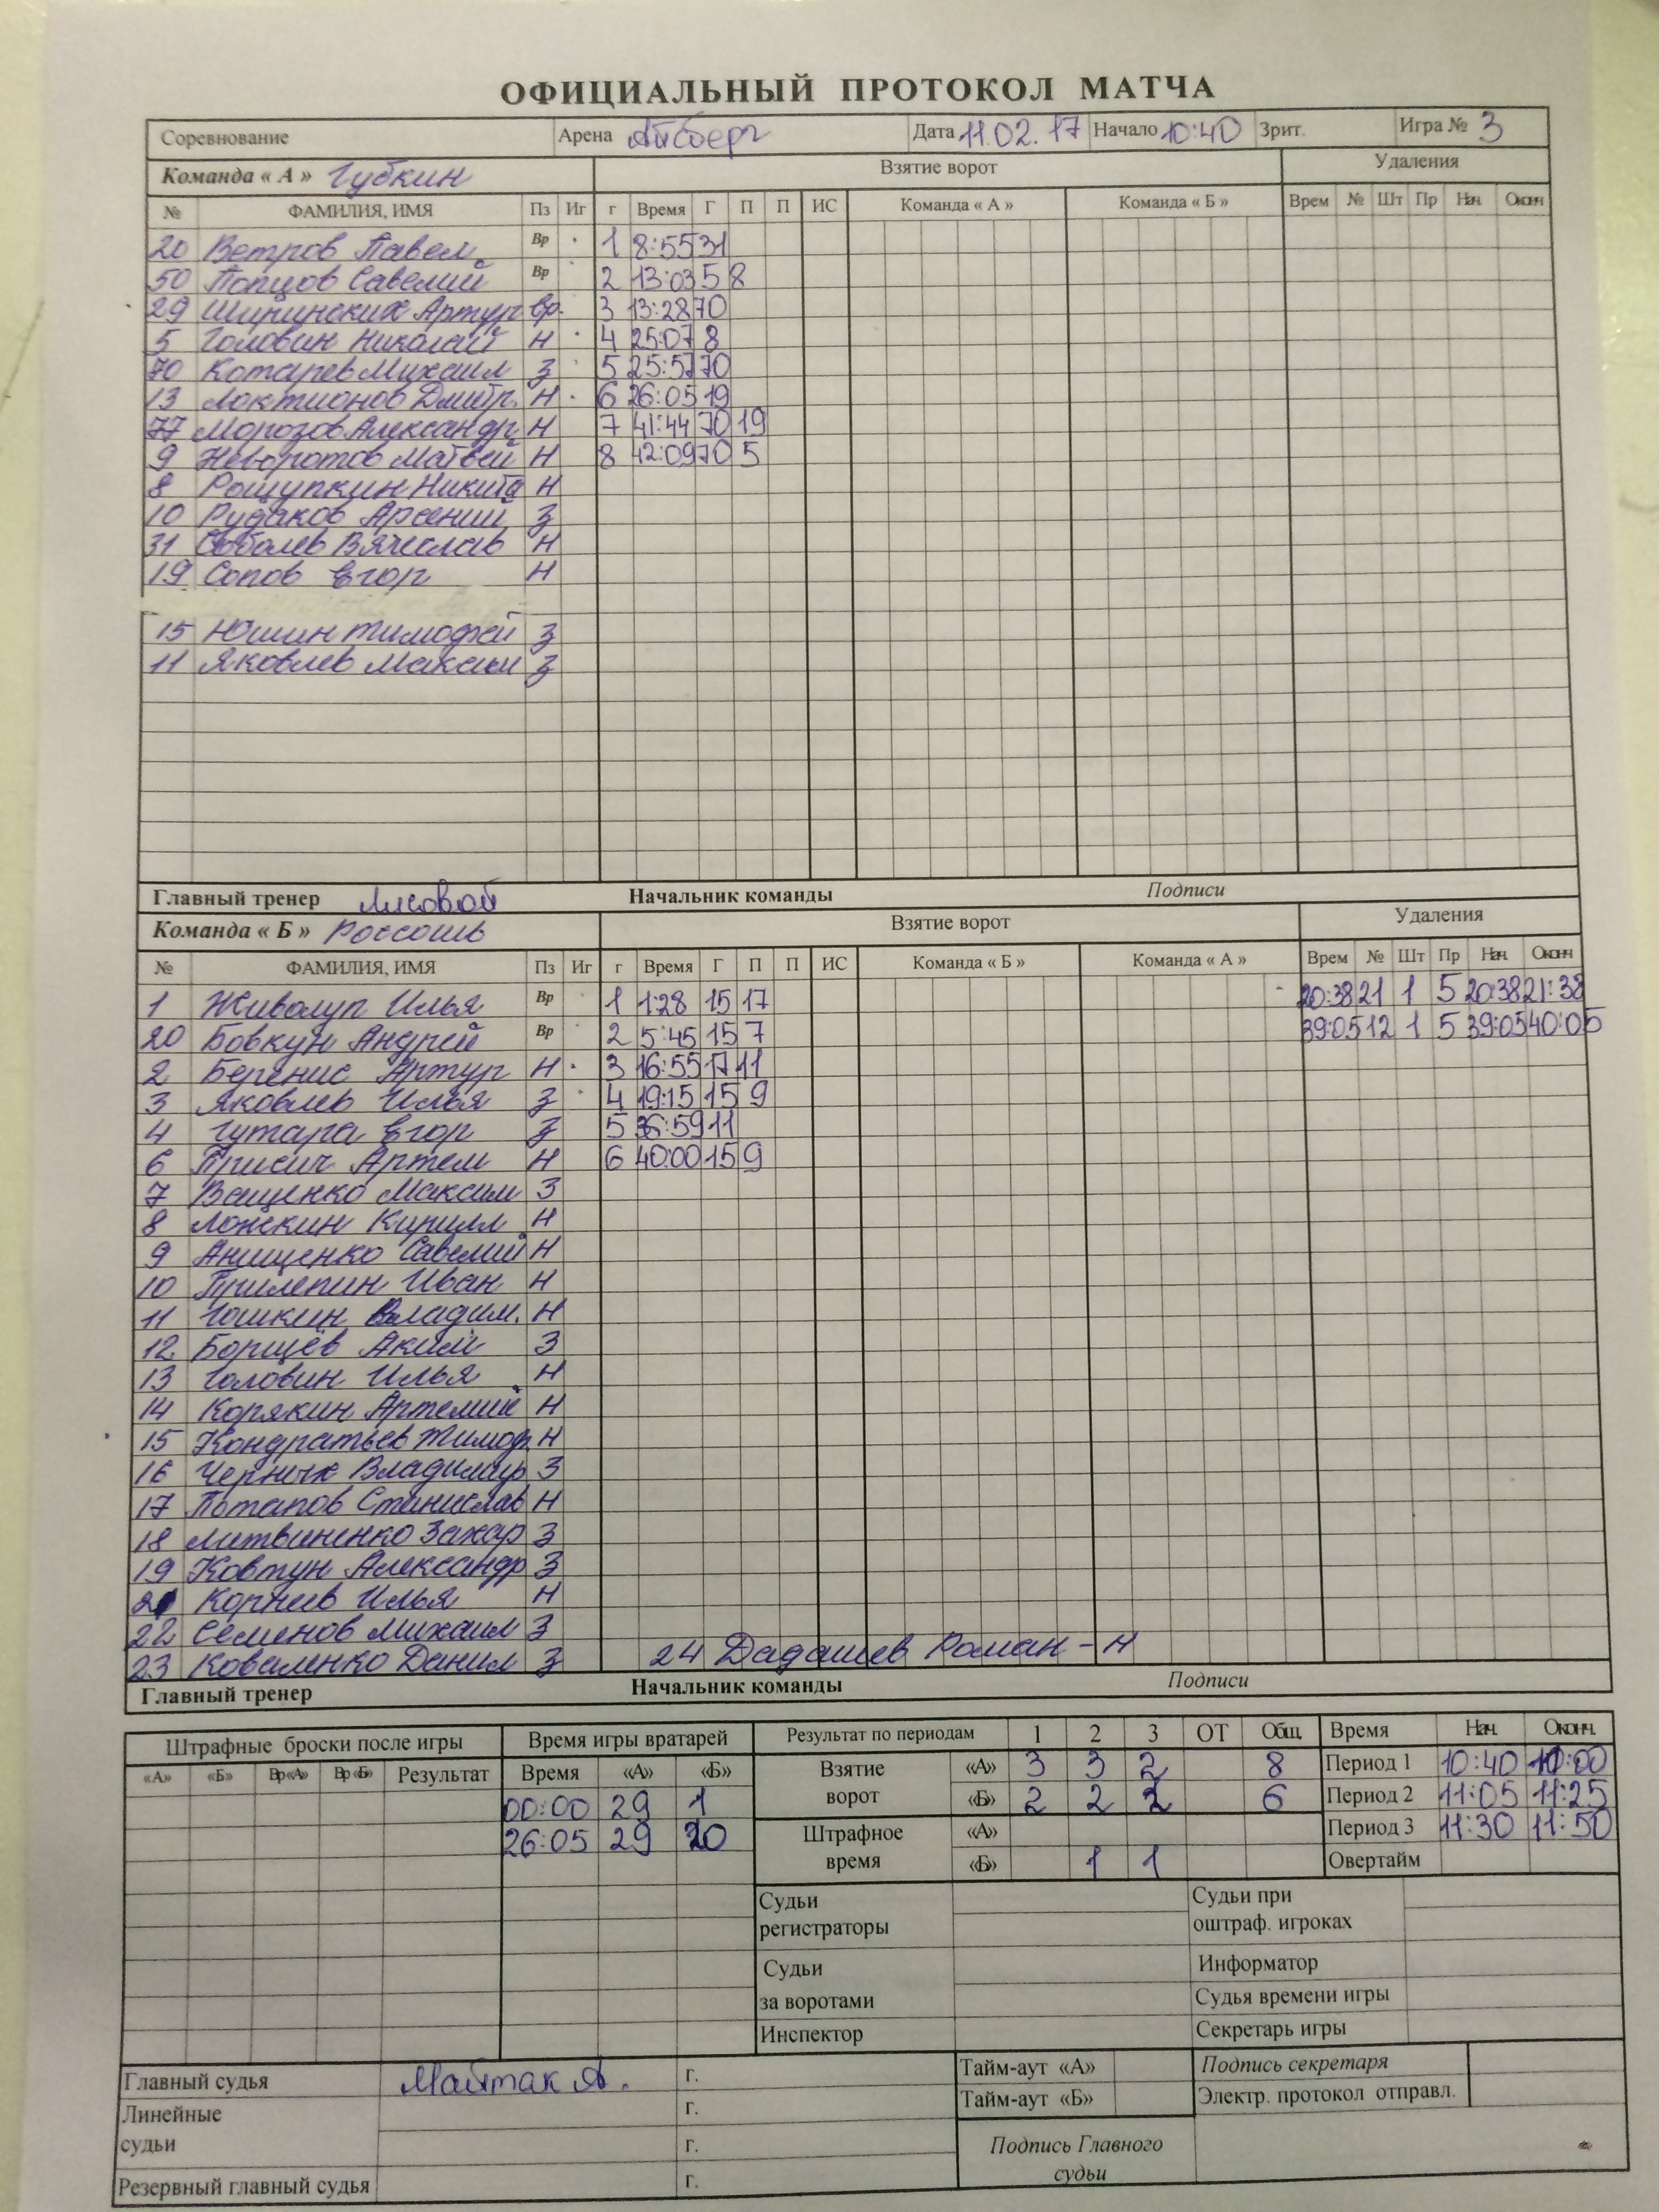 ОФИЦИАЛЬНЫЙ ПРОТОКОЛ МАТЧА
Соревнование Арена Айсберг Дата 11.02.17 Начало 10:40 Зрит. Игра № 3
Команда « А » Губкин Взятие ворот Удаления
№ ФАМИЛИЯ, ИМЯ Пз Иг г Время Г П П ИС Команда « А » Команда « Б » Врем № Шт Пр Нач. Оконч
20 Ветров Павел Вр 1 8:55 31
50 Попцов Савелий Вр 2 13:03 5 8
29 Ширинских Артур вр. 3 13:28 70
5 Головин Николай Н 4 25:07 8
70 Котарев Михаил З 5 25:57 70
13 Локтионов Дмитр. Н 6 26:05 19
77 Морозов Александр Н 7 41:44 70 19
9 Неворотов Матвей Н 8 42:09 70 5
8 Рощупкин Никита Н
10 Рудаков Арсений З
31 Соболев Вячеслав Н
19 Сопов Егор Н
15 Юшин Тимофей З
11 Яковлев Максим З
Главный тренер Лисовой Начальник команды Подписи
Команда « Б » Россошь Взятие ворот Удаления
№ ФАМИЛИЯ, ИМЯ Пз Иг г Время Г П П ИС Команда « Б » Команда « А » Врем № Шт Пр Нач. Оконч
1 Живолуп Илья Вр 1 1:28 15 17 20:38 21 1 5 20:38 21:38
20 Бовкун Андрей Вр 2 5:45 15 7 39:05 12 1 5 39:05 40:05
2 Беренис Артур Н 3 16:55 17 11
3 Яковлев Илья З 4 19:15 15 9
4 Гутара Егор З 5 36:59 11
6 Присич Артем Н 6 40:00 15 9
7 Ващенко Максим З
8 Ложкин Кирилл Н
9 Анищенко Савелий Н
10 Прилепин Иван Н
11 Гошкин Владим. Н
12 Борщёв Аким З
13 Головин Илья Н
14 Корякин Артемий Н
15 Кондратьев Тимоф. Н
16 Черных Владимир З
17 Потапов Станислав Н
18 Литвиненко Захар З
19 Ковтун Александр З
21 Корнев Илья Н
22 Семенов Михаил З
23 Коваленко Данил З 24 Дадашев Роман - Н
Главный тренер Начальник команды Подписи
Штрафные броски после игры Время игры вратарей Результат по периодам 1 2 3 ОТ Общ. Время Нач. Оконч.
«А» «Б» Вр«А» Вр«Б» Результат Время «А» «Б» Взятие ворот «А» 3 3 2 8 Период 1 10:40 11:00
00:00 29 1 «Б» 2 2 2 6 Период 2 11:05 11:25
26:05 29 20 Штрафное время «А» Период 3 11:30 11:50
«Б» 1 1 Овертайм
Судьи регистраторы Судьи при оштраф. игроках
Судьи за воротами Информатор
Судья времени игры
Инспектор Секретарь игры
Главный судья Майтак А. г. Тайм-аут «А» Подпись секретаря
Линейные судьи г. Тайм-аут «Б» Электр. протокол отправл.
г. Подпись Главного судьи
Резервный главный судья г.